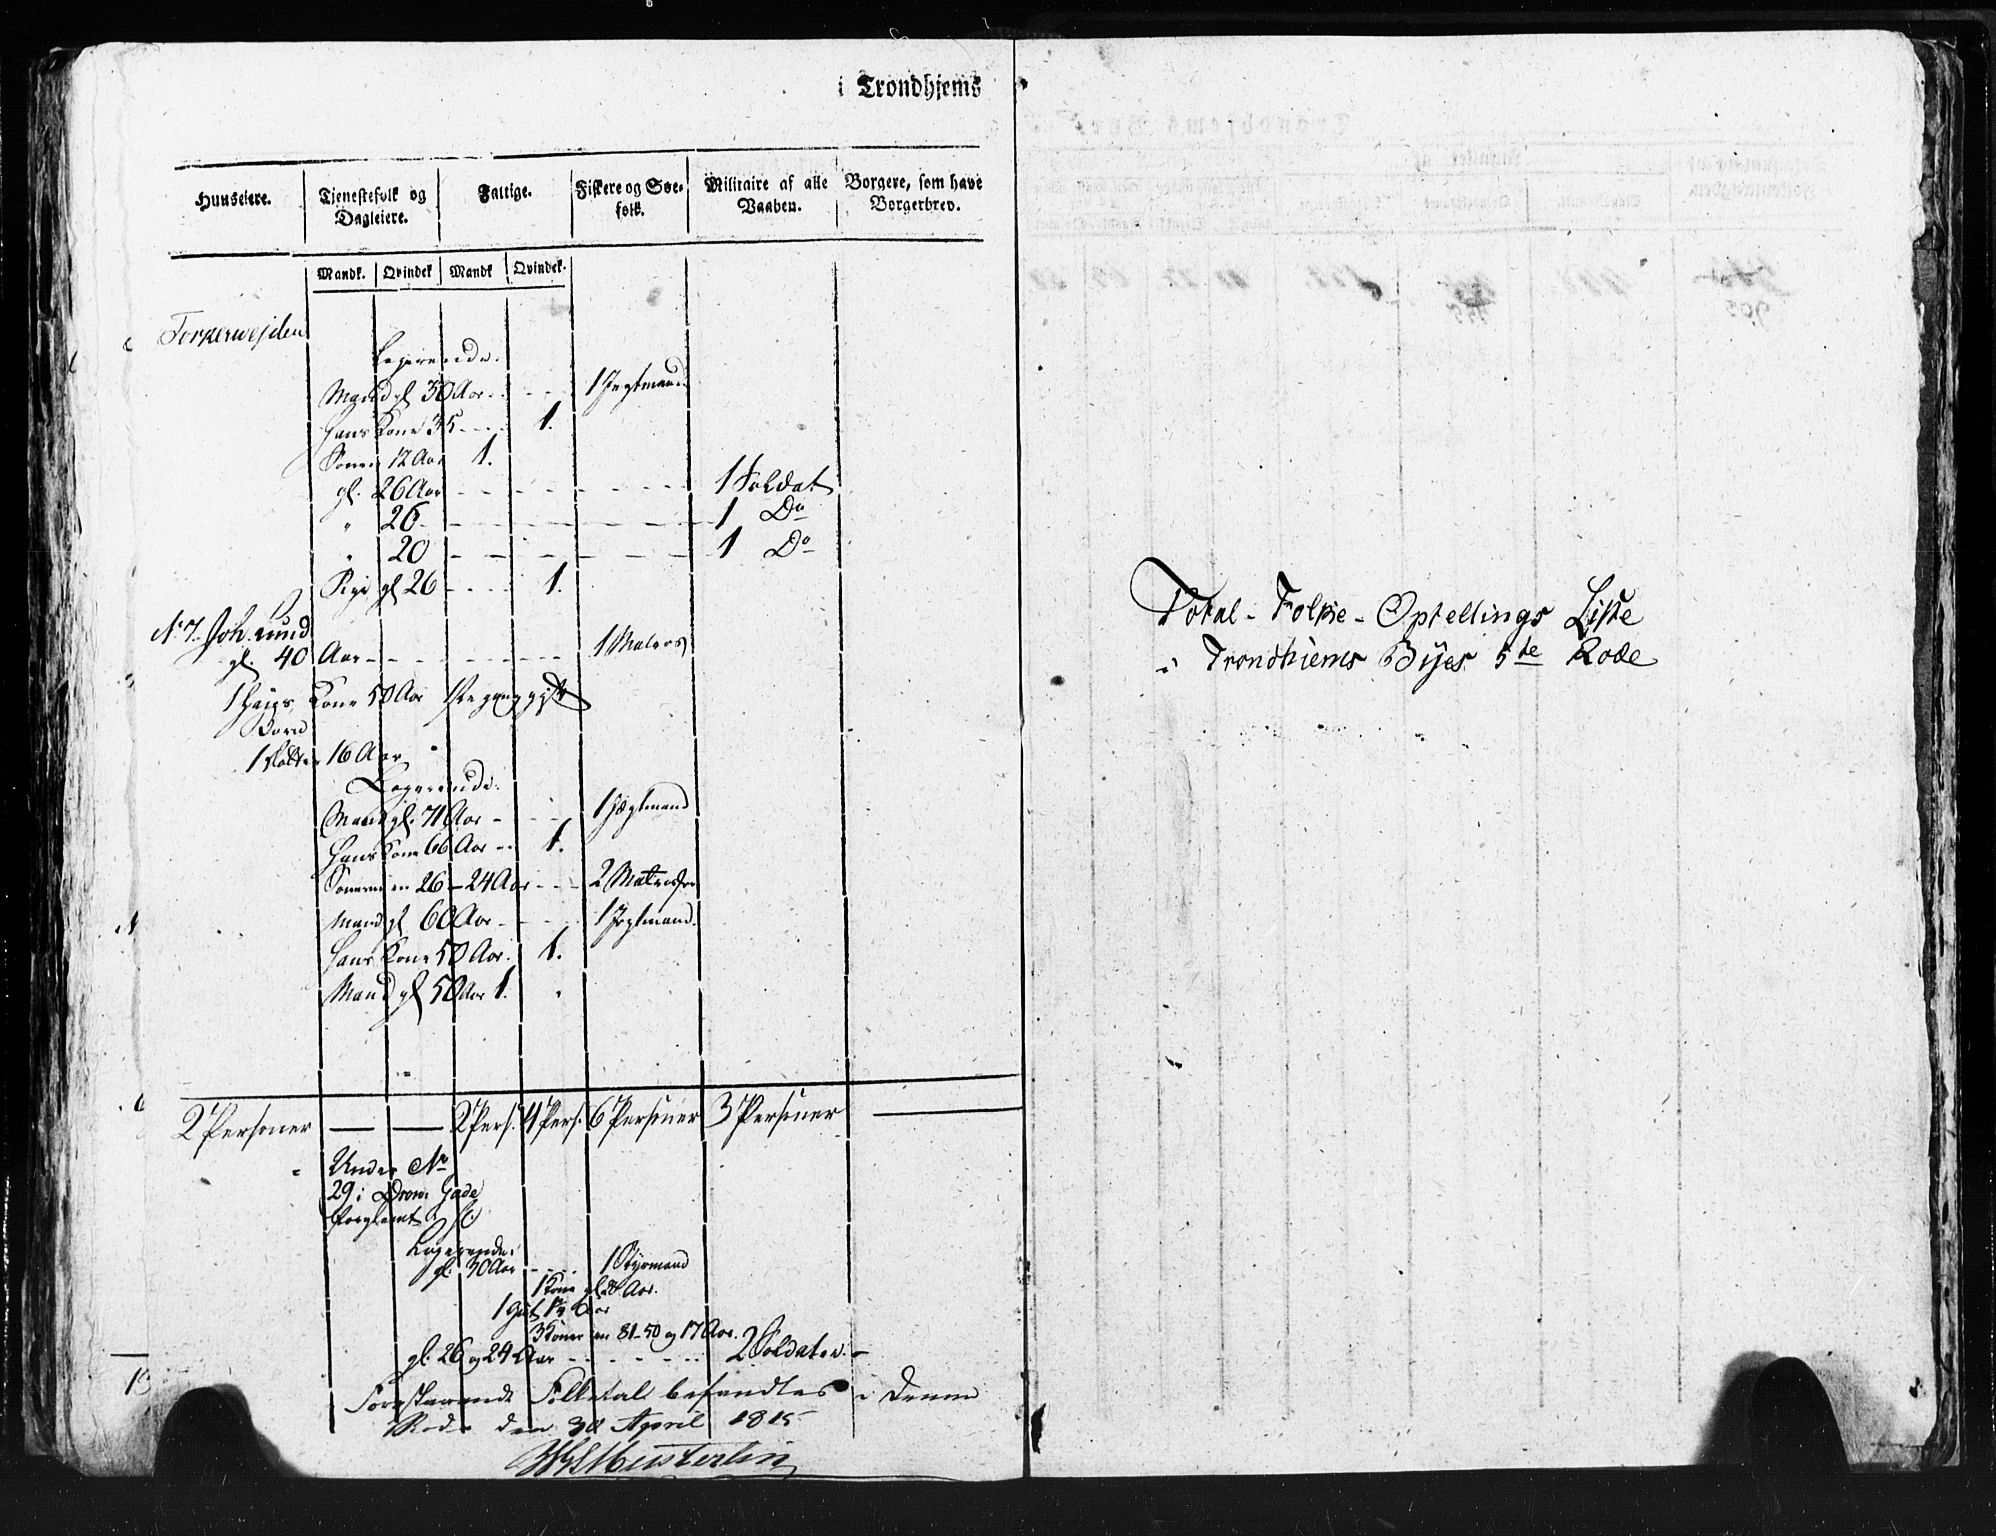 i Trondhjems
Huuseiere. Tjenestefolk og Dagleiere. Faltige. Fiskere og Søefolk. Militaire af alle Vaaben. Borgere, som have Borgerbrev.
Mandk. Qvindek Mandk Qvindek.
Logerende.
Mand gl 30 Aar - - 1 Jegtmand
Hans Kone 35 - - - 1.
Sønen 12 Aar 1.
gl. 26 Aar - - - - - - 1 Soldat
" 26 - - - - - - 1 Do
" 20 - - - - - - 1 Do
gl 26 - - - 1.
No 7. Joh. Lund
gl. 40 Aar - - - - - - 1
1 Hans Kone 50 Aar
Børn
1 Datter 16 Aar "
Logerende.
Mand gl. 71 Aar - - - 1 Jægtmand
Hans Kone 66 Aar - - 1.
Sønerne 26 - 24 Aar - - - 2 Matroser
Mand gl 60 Aar - - - 1 Jegtmand.
Hans Kone 50 Aar. 1.
Mand gl 50 Aar 1. "
2 Personer — — 2 Pers. 4 Pers. 6 Personer 3 Personer —
Under No
29 i Dron. Gade
forglemt
Logerende.
gl. 30 Aar - - - 1 Styrmand
1 Kone gl. 28 Aar.
1 Gut 6 Aar
3 Koner 81 - 50 og 17 Aar.
gl. 26 og 24 Aar - - - - - 2 Soldater. -
Forestaaende Folketal befandtes i denne
Rode den 30 April 1815
Total - Folke - Optellings Liste
i Trondhiems Byes 5te Rode